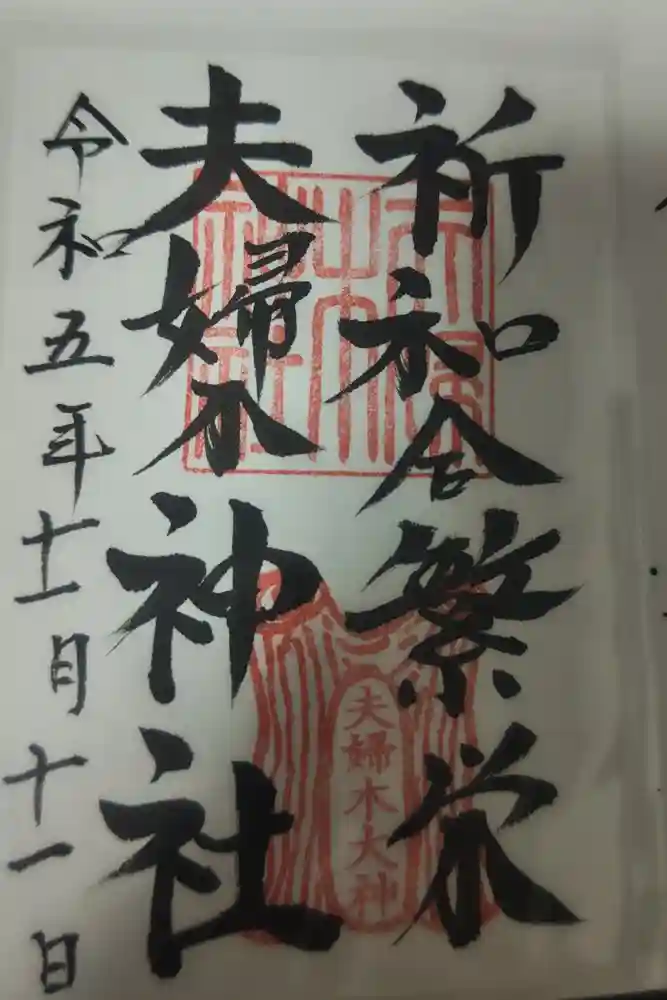 祈和合繁栄
夫婦木神社
令和五年十一月十一日
夫婦木大神